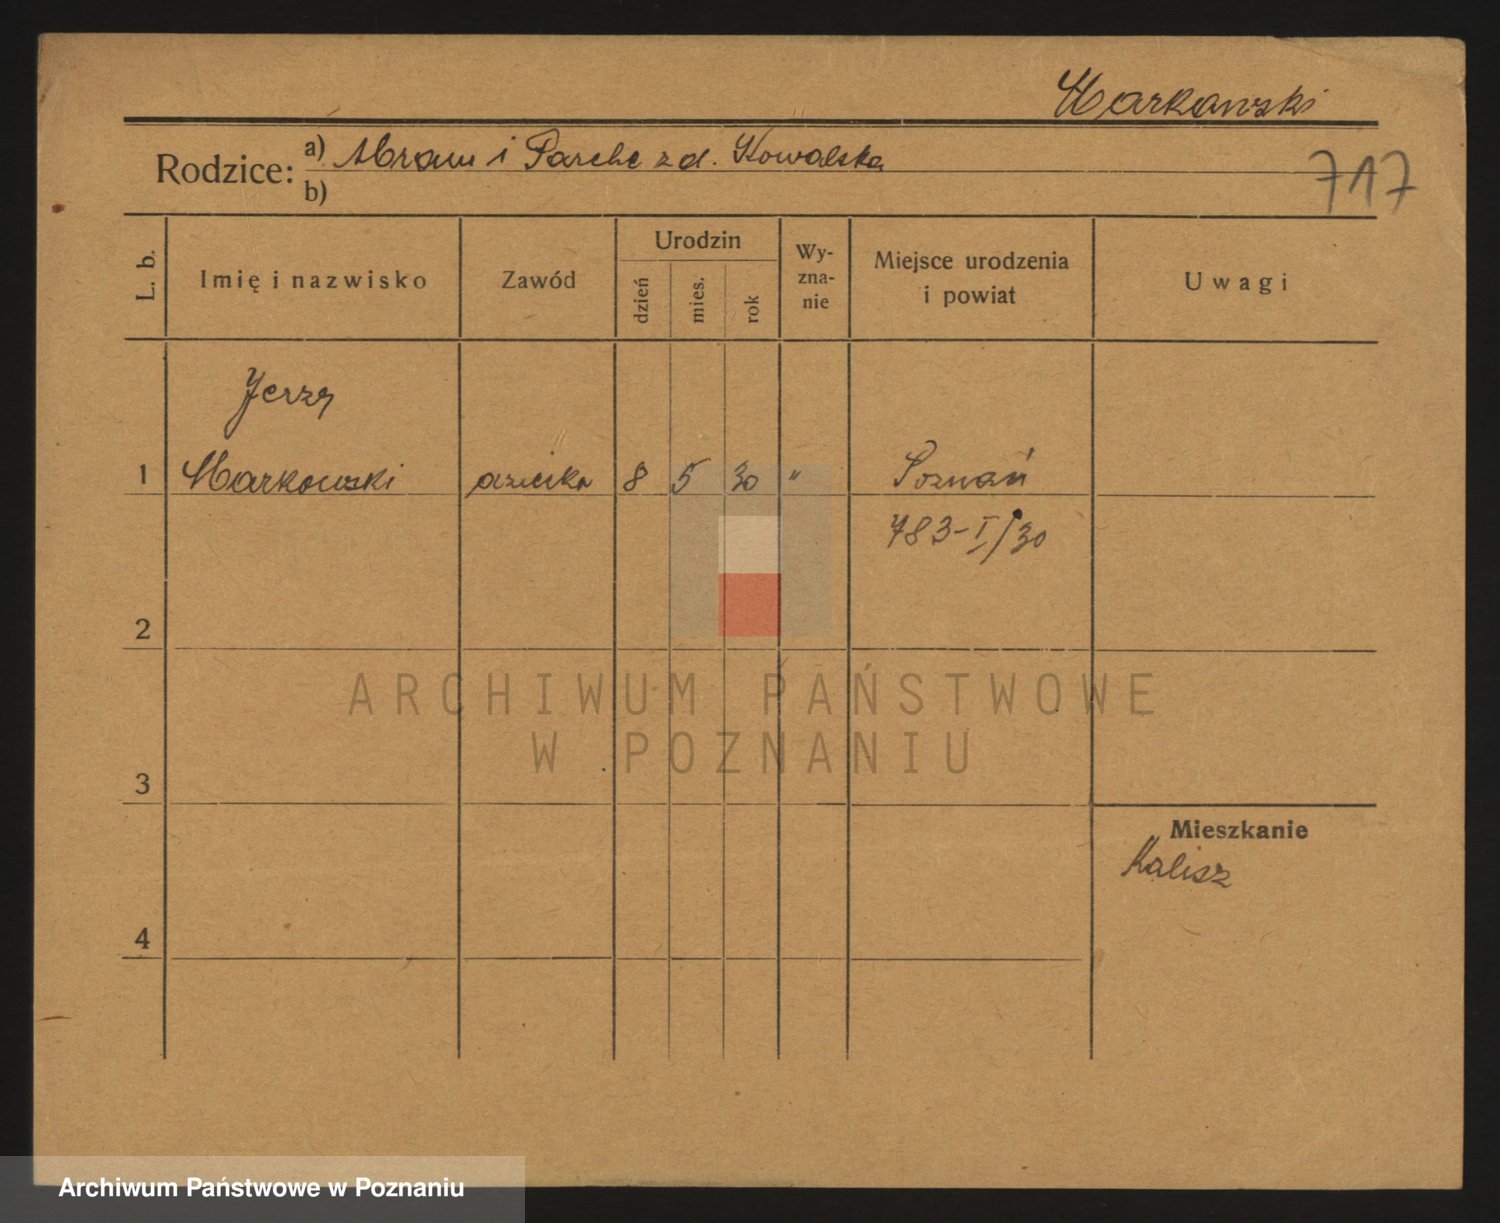 Markowski
Rodzice: a) Abram i z d. Kowalska
b)
717
L. b.
Imię i nazwisko
Zawód
Urodzin
dzień
mies.
rok
Wy-
zna-
nie
Miejsce urodzenia
i powiat
Uwagi
Jerzy
1 Markowski 8 5 30 " Poznań
783-I/30
2
ARCHIWUM PAŃSTWOWE
W POZNANIU
3
Mieszkanie
Kalisz
4
Archiwum Państwowe w Poznaniu